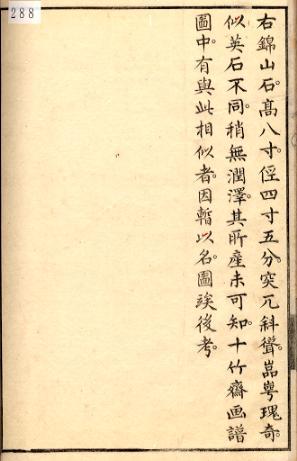 288
右錦山石。高八寸。徑四寸五分。突兀斜聳。嵓崿瑰奇。
似英石不同。稍無潤澤。其所產未可知。十竹齋画譜
圖中。有與此相似者。因暫以名。圖竢後考。